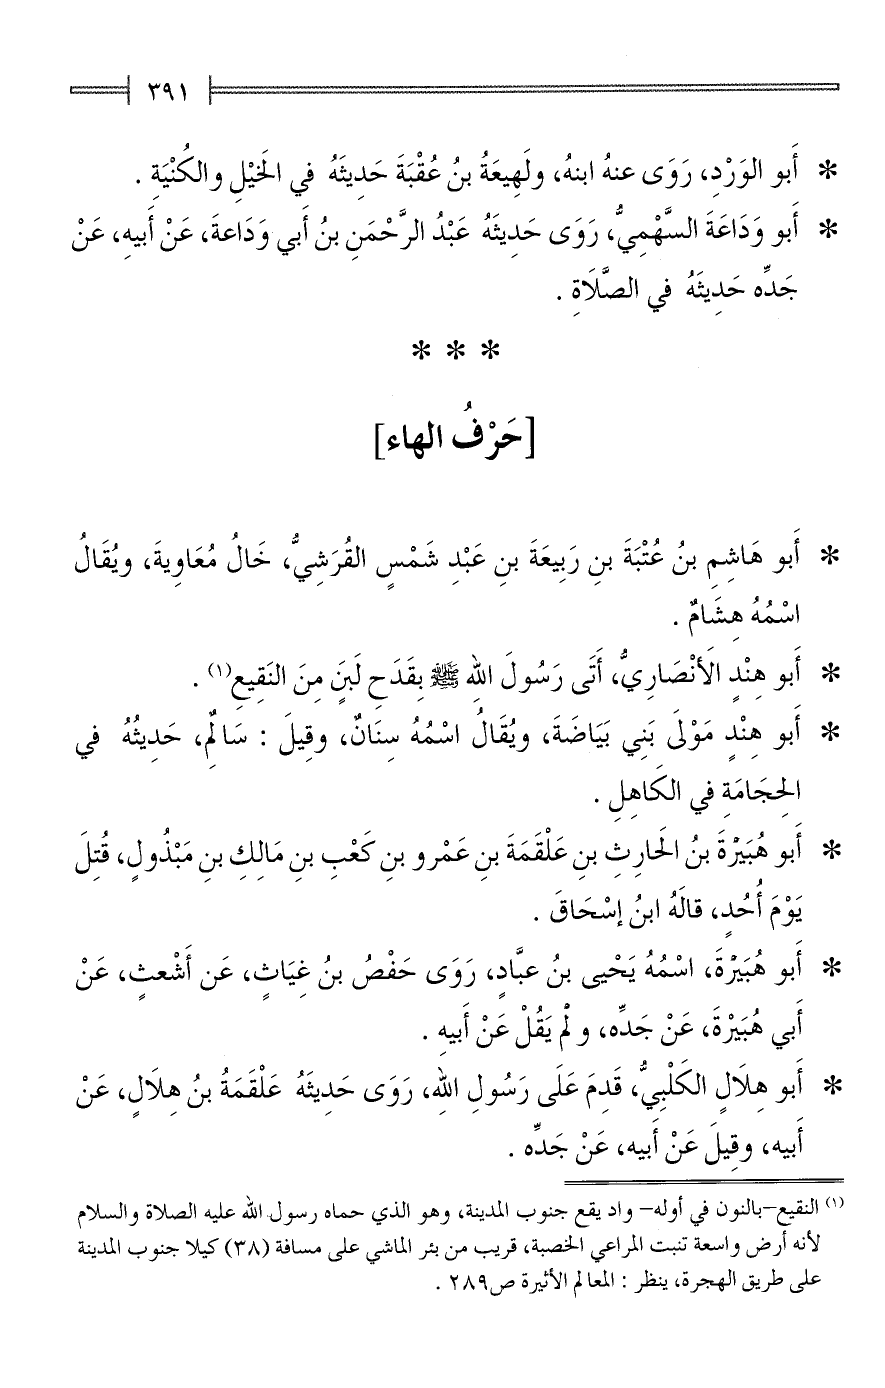 ٣٩١
* أَبو الوَرْدِ، رَوَى عنهُ ابنهُ، ولَهِيعَةُ بنُ عُقْبَةَ حَدِيثَهُ في الخَيْلِ والكُنْيَةِ .
* أَبو وَدَاعَةَ السَّهْمِيُّ، رَوَى حَدِيثَهُ عَبْدُ الرَّحْمَنِ بنُ أَبي وَدَاعةَ، عَنْ أَبيهِ، عَنْ
جَدِّه حَدِيثَهُ في الصَّلَاةِ .
* * *
[حَرْفُ الهاء]
* أَبو هَاشِمِ بنُ عُتْبَةَ بنِ رَبِيعَةَ بنِ عَبْدِ شَمْسٍ القُرَشِيُّ، خَالُ مُعَاوِيةَ، ويُقَالُ
اسْمُهُ هِشَامٌ .
* أَبو هِنْدٍ الأَنْصَارِيُّ، أَتَى رَسُولَ اللهِ ﷺ بِقَدَحِ لَبَنٍ مِنَ النَقِيعِ(١) .
* أَبو هِنْدٍ مَوْلَى بَنِي بَيَاضَةَ، ويُقَالُ اسْمُهُ سِنَانٌ، وقِيلَ : سَالِمٌ، حَدِيثُهُ في
الحِجَامَةِ في الكَاهِلِ .
* أَبو هُبَيْرَةَ بنُ الحَارِثِ بنِ عَلْقَمَةَ بنِ عَمْرو بنِ كَعْبِ بنِ مَالِكِ بنِ مَبْذُولٍ، قُتِلَ
يَوْمَ أُحُدٍ، قالَهُ ابنُ إسْحَاقَ .
* أَبو هُبَيْرَةَ، اسْمُهُ يَحْيى بنُ عبَّادٍ، رَوَى حَفْصُ بنُ غِيَاثٍ، عَن أَشْعثٍ، عَنْ
أَبي هُبَيْرَةَ، عَنْ جَدِّه، ولَمْ يَقُلْ عَنْ أَبيهِ .
* أَبو هِلَالٍ الكَلْبِيُّ، قَدِمَ عَلَى رَسُولِ اللهِ، رَوَى حَدِيثَهُ عَلْقَمَةُ بنُ هِلَالٍ، عَنْ
أَبيه، وقِيلَ عَنْ أَبيه، عَنْ جَدِّه .
(١) النقيع-بالنون في أوله- واد يقع جنوب المدينة، وهو الذي حماه رسول الله عليه الصلاة والسلام
لأنه أرض واسعة تنبت المراعي الخصبة، قريب من بئر الماشي على مسافة (٣٨) كيلا جنوب المدينة
على طريق الهجرة، ينظر : المعالم الأثيرة ص٢٨٩ .